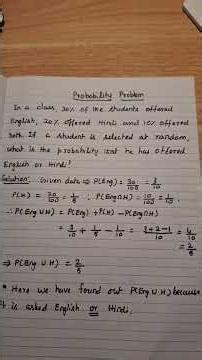 Probability Problem
In a class 30% of the students offered
English, 20% offered Hindi and 10% offered
both. If a student is selected at random,
what is the probability that he has offered
English or Hindi?
Solution: Given data ⇒ P(Eng) = 30/100 = 3/10
P(H) = 20/100 = 1/5 ∴ P(Eng∩H) = 10/100 = 1/10.
∴ P(Eng ∪ H) = P(Eng) + P(H) - P(Eng∩H)
= 3/10 + 1/5 - 1/10 = 3+2-1/10 = 4/10
= 2/5
⇒ P(Eng ∪ H) = 2/5
* Here we have found out P(Eng ∪ H) because
it is asked English or Hindi.